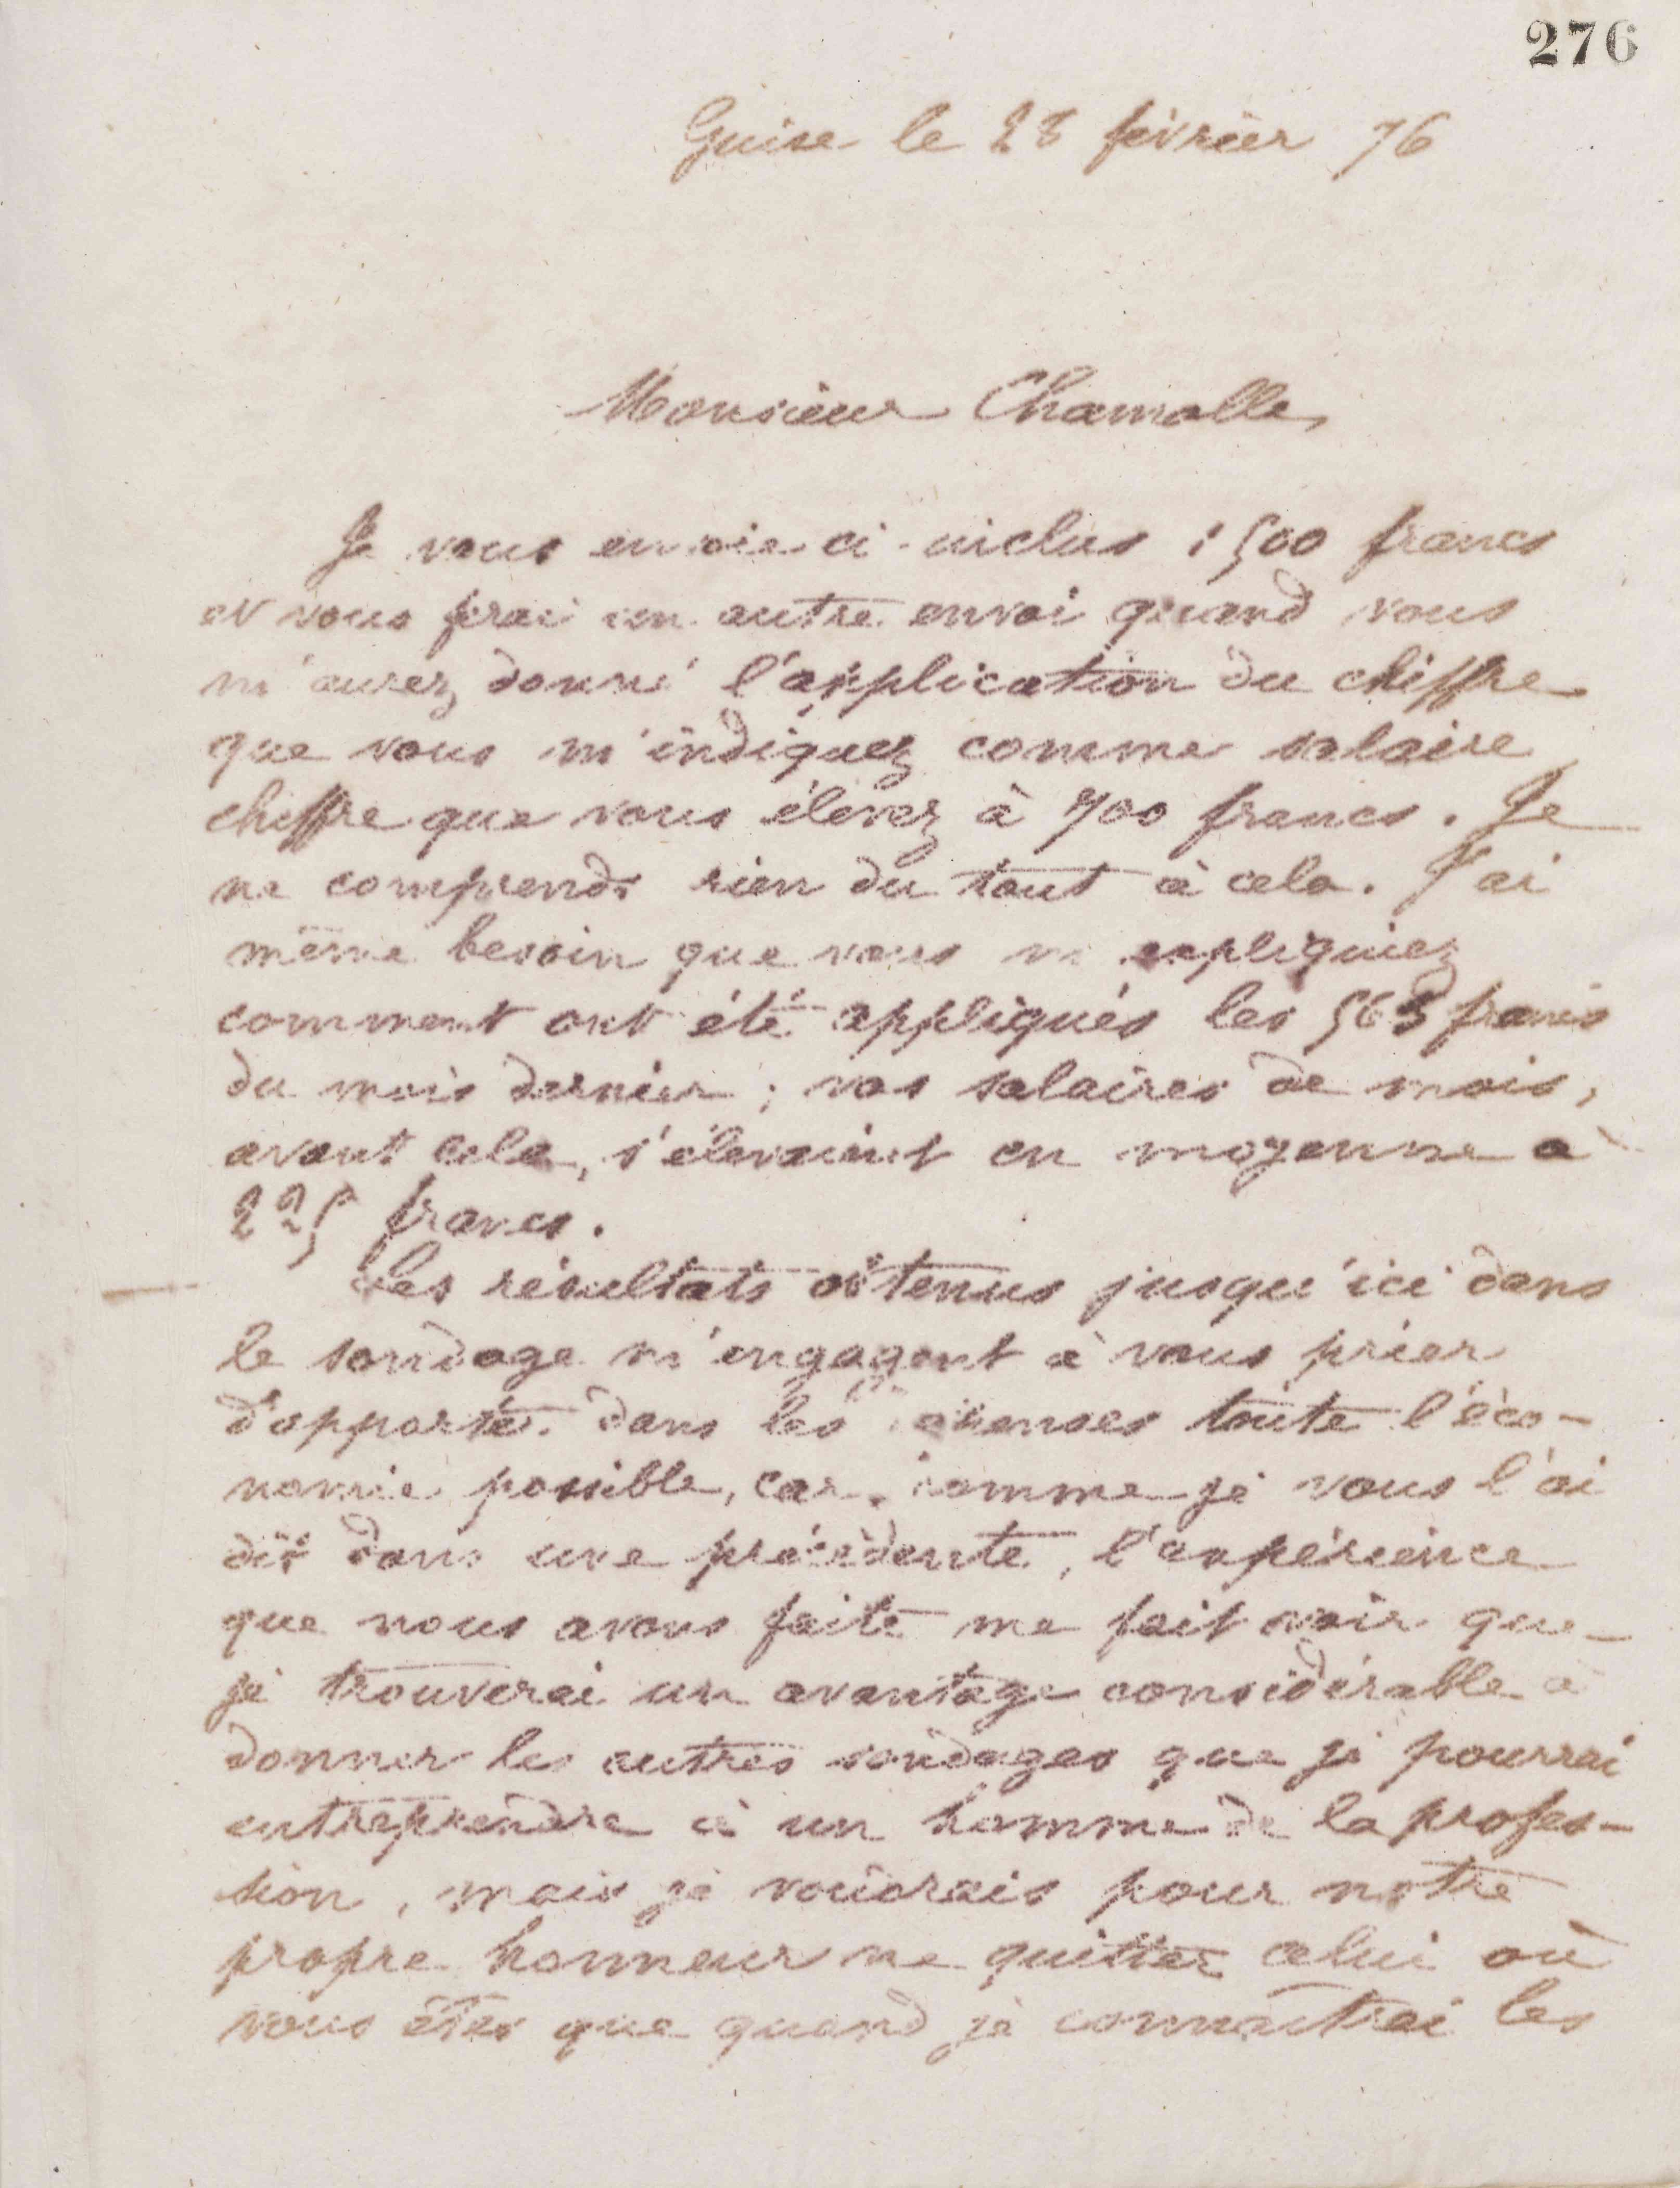 276
Guise le 28 février 76
Monsieur Chamolle,
Je vous envoie ci-inclus 1500 francs
et vous ferai un autre envoi quand vous
m'aurez donné l'explication du chiffre
que vous m'indiquez comme salaire
chiffre que vous élevez à 700 francs. Je
ne comprends rien du tout à cela. J'ai
même besoin que vous m'expliquiez
comment ont été appliqués les 565 francs
du mois dernier ; vos salaires de mois,
avant cela, s'élevaient en moyenne à
225 francs.
Les résultats obtenus jusqu'ici dans
le sondage m'engagent à vous prier
d'apporter dans les dépenses toute l'éco-
nomie possible, car, comme je vous l'ai
dit dans une précédente, l'expérience
que nous avons faite me fait voir que
je trouverai un avantage considérable à
donner les autres sondages que je pourrai
entreprendre à un homme de la profes-
sion, mais je voudrais pour notre
propre honneur ne quitter celui où
vous êtes que quand je connaîtrai les